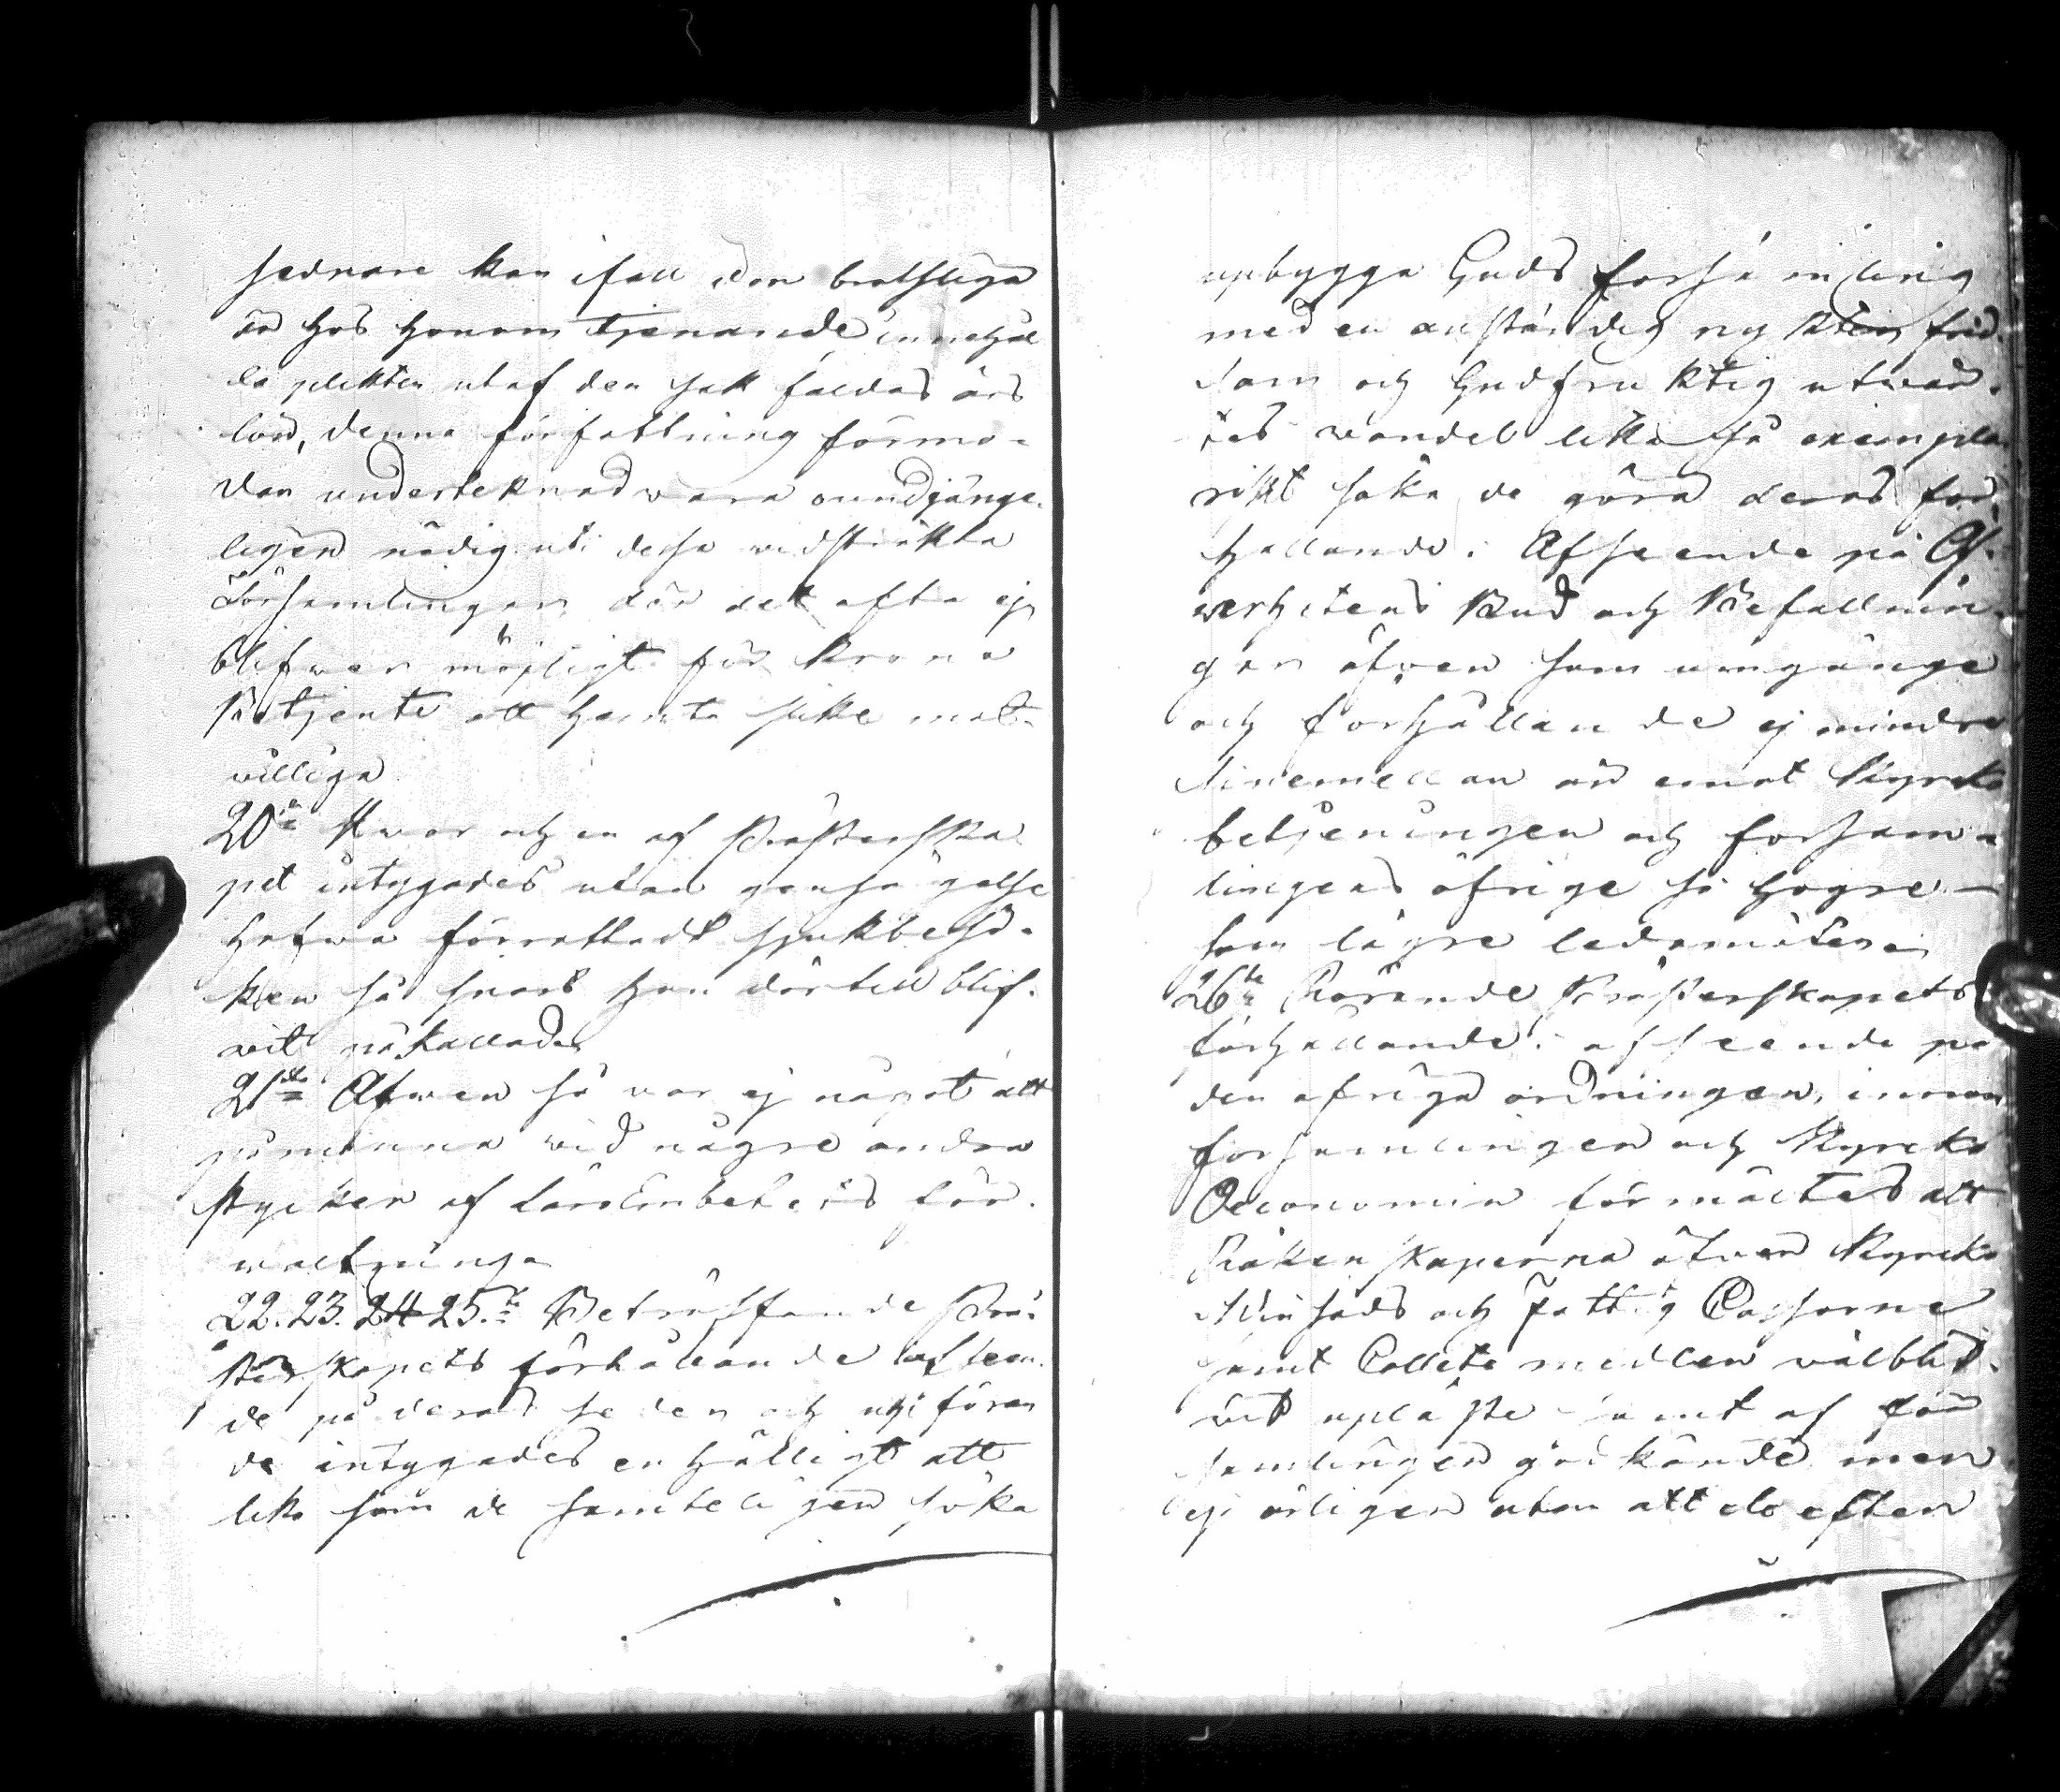 sednare kan ifall den brotsliga
är hos honom tjenande innehål
la plikten utaf den sak fäldas års
lön, denna författning förmo-
dan underteknad wara oundgänge-
ligen nödig uti dessa widsträkta
Församlingar, där det ofta ej
blifwer möjligt för krono
betjente att hemta slike mot-
willige
20de Hwar och en af Prästerska
pet intygades utan gensägelse
hafwa förrättadt sjukbesö-
ken så snart han därtill blif-
wit påkallad
21sta Äfwen så war ej något att
påminna wid någre andra
stycken af LäroEmbetets för-
waltninga
22. 23. 24 25.te Beträffande Prä-
sterskapets förhållande i afseen-
de på deras seder och upföran
de intygades enhälligt att
lika som de samteligen söka
upbygga Guds församling
med en anständig nyktern frid-
sam och Gudfruktig utwär-
tes wandel lika så exempla-
riskt söka de göra deras för-
hållande i Afseende på Öf-
werhetens Bud och Befallnin-
gar äfwen som umgänge
och förhållande ej mindre
sinemellan än emot Kyrko
betjeningen och försam-
lingens öfrige så högre
som lägre ledamöter
26te Rörande Prästerskapets
förhållande i afseende på
den öfriga ordningen, innom
församlingen och Kyrko
Oeconomin förmältes att
Räkenskaperna öfwer Kyrko
Winsäds och Fattig Cassorne
samt Collecte medlen wäl blif-
wit upläste samt af för
samlingen godkände men
ej årligen utan att de efter